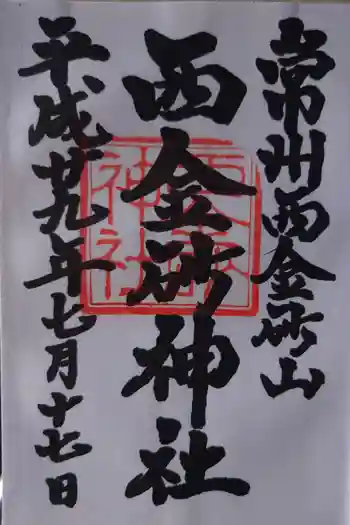 常州西金砂山
西金砂神社
平成廿九年七月十七日